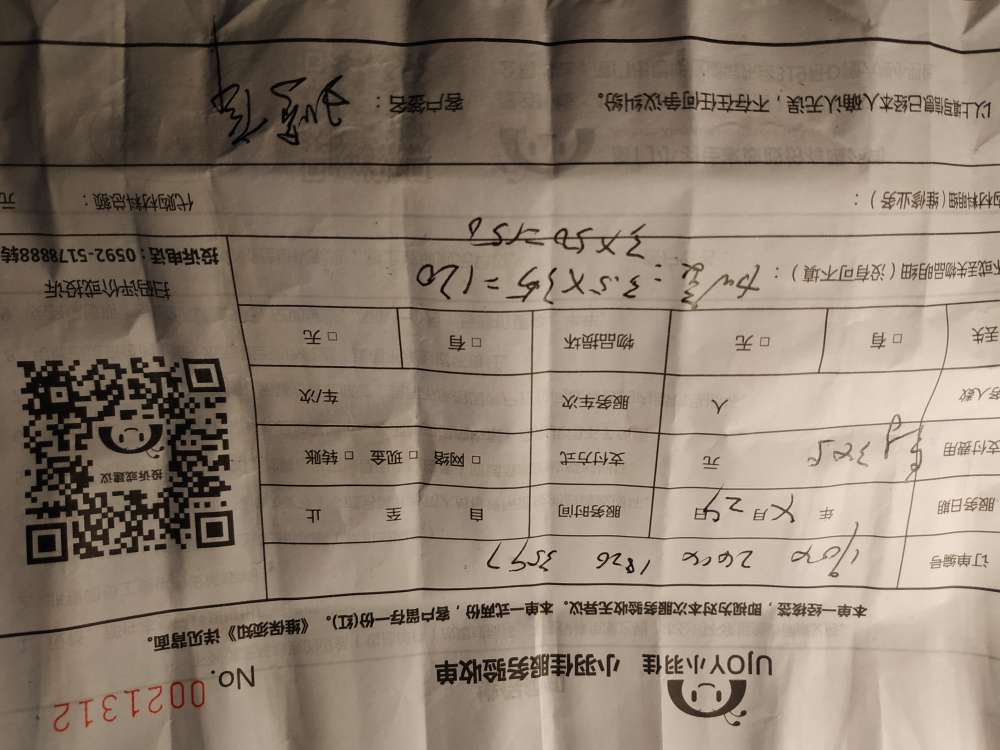 UJOY小羽佳 小羽佳服务验收单
No. 0021312
本单一经核签，即视为对本次服务验收无异议。本单一式两份，客户留存一份(红)。《维保须知》详见背面。
订单编号 1826 3597
服务日期 年 月 29 日 服务时间 自 至 止
支付费用 元 支付方式 □ 网络 □ 现金 □ 转账
人数 人 服务车次 车/次
丢失 □ 有 □ 无 物品损坏 □ 有 □ 无
投诉或建议
坏或丢失物品明细（没有可不填）： 3.5×35=120
3×50=150
扫码评价或投诉
投诉电话：0592-5178888转
购材料明细（维修业务）： 代购材料总额： 元
以上填写信息已经本人确认无误，不存在任何争议纠纷。 客户签名：